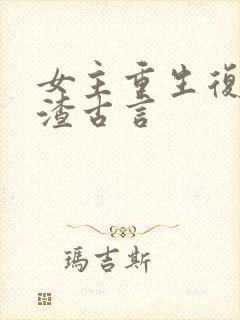 女主重生復
渣古言
瑪吉斯